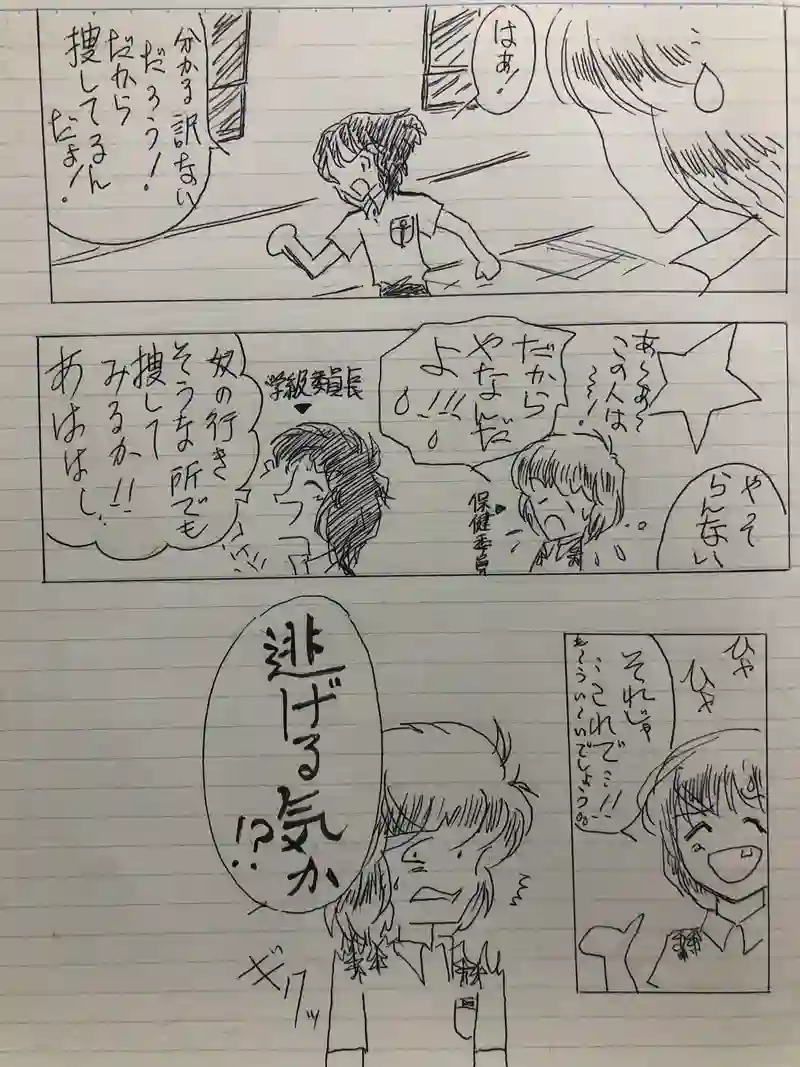 はぁ!
分かる訳ない
だろう!
だから
捜してるん
だよ!
あ〜あ〜
この人は
〜〜!
やって
らんない
だから
やなんだ
よ!!!
保健委員
学級委員長
奴の行き
そうな所でも
捜して
みるか!!
あははし
ひゃ
ひゃ
それじゃ
これで…!!
もうい〜いでしょう。。
逃げる気か
!?
ギクッ